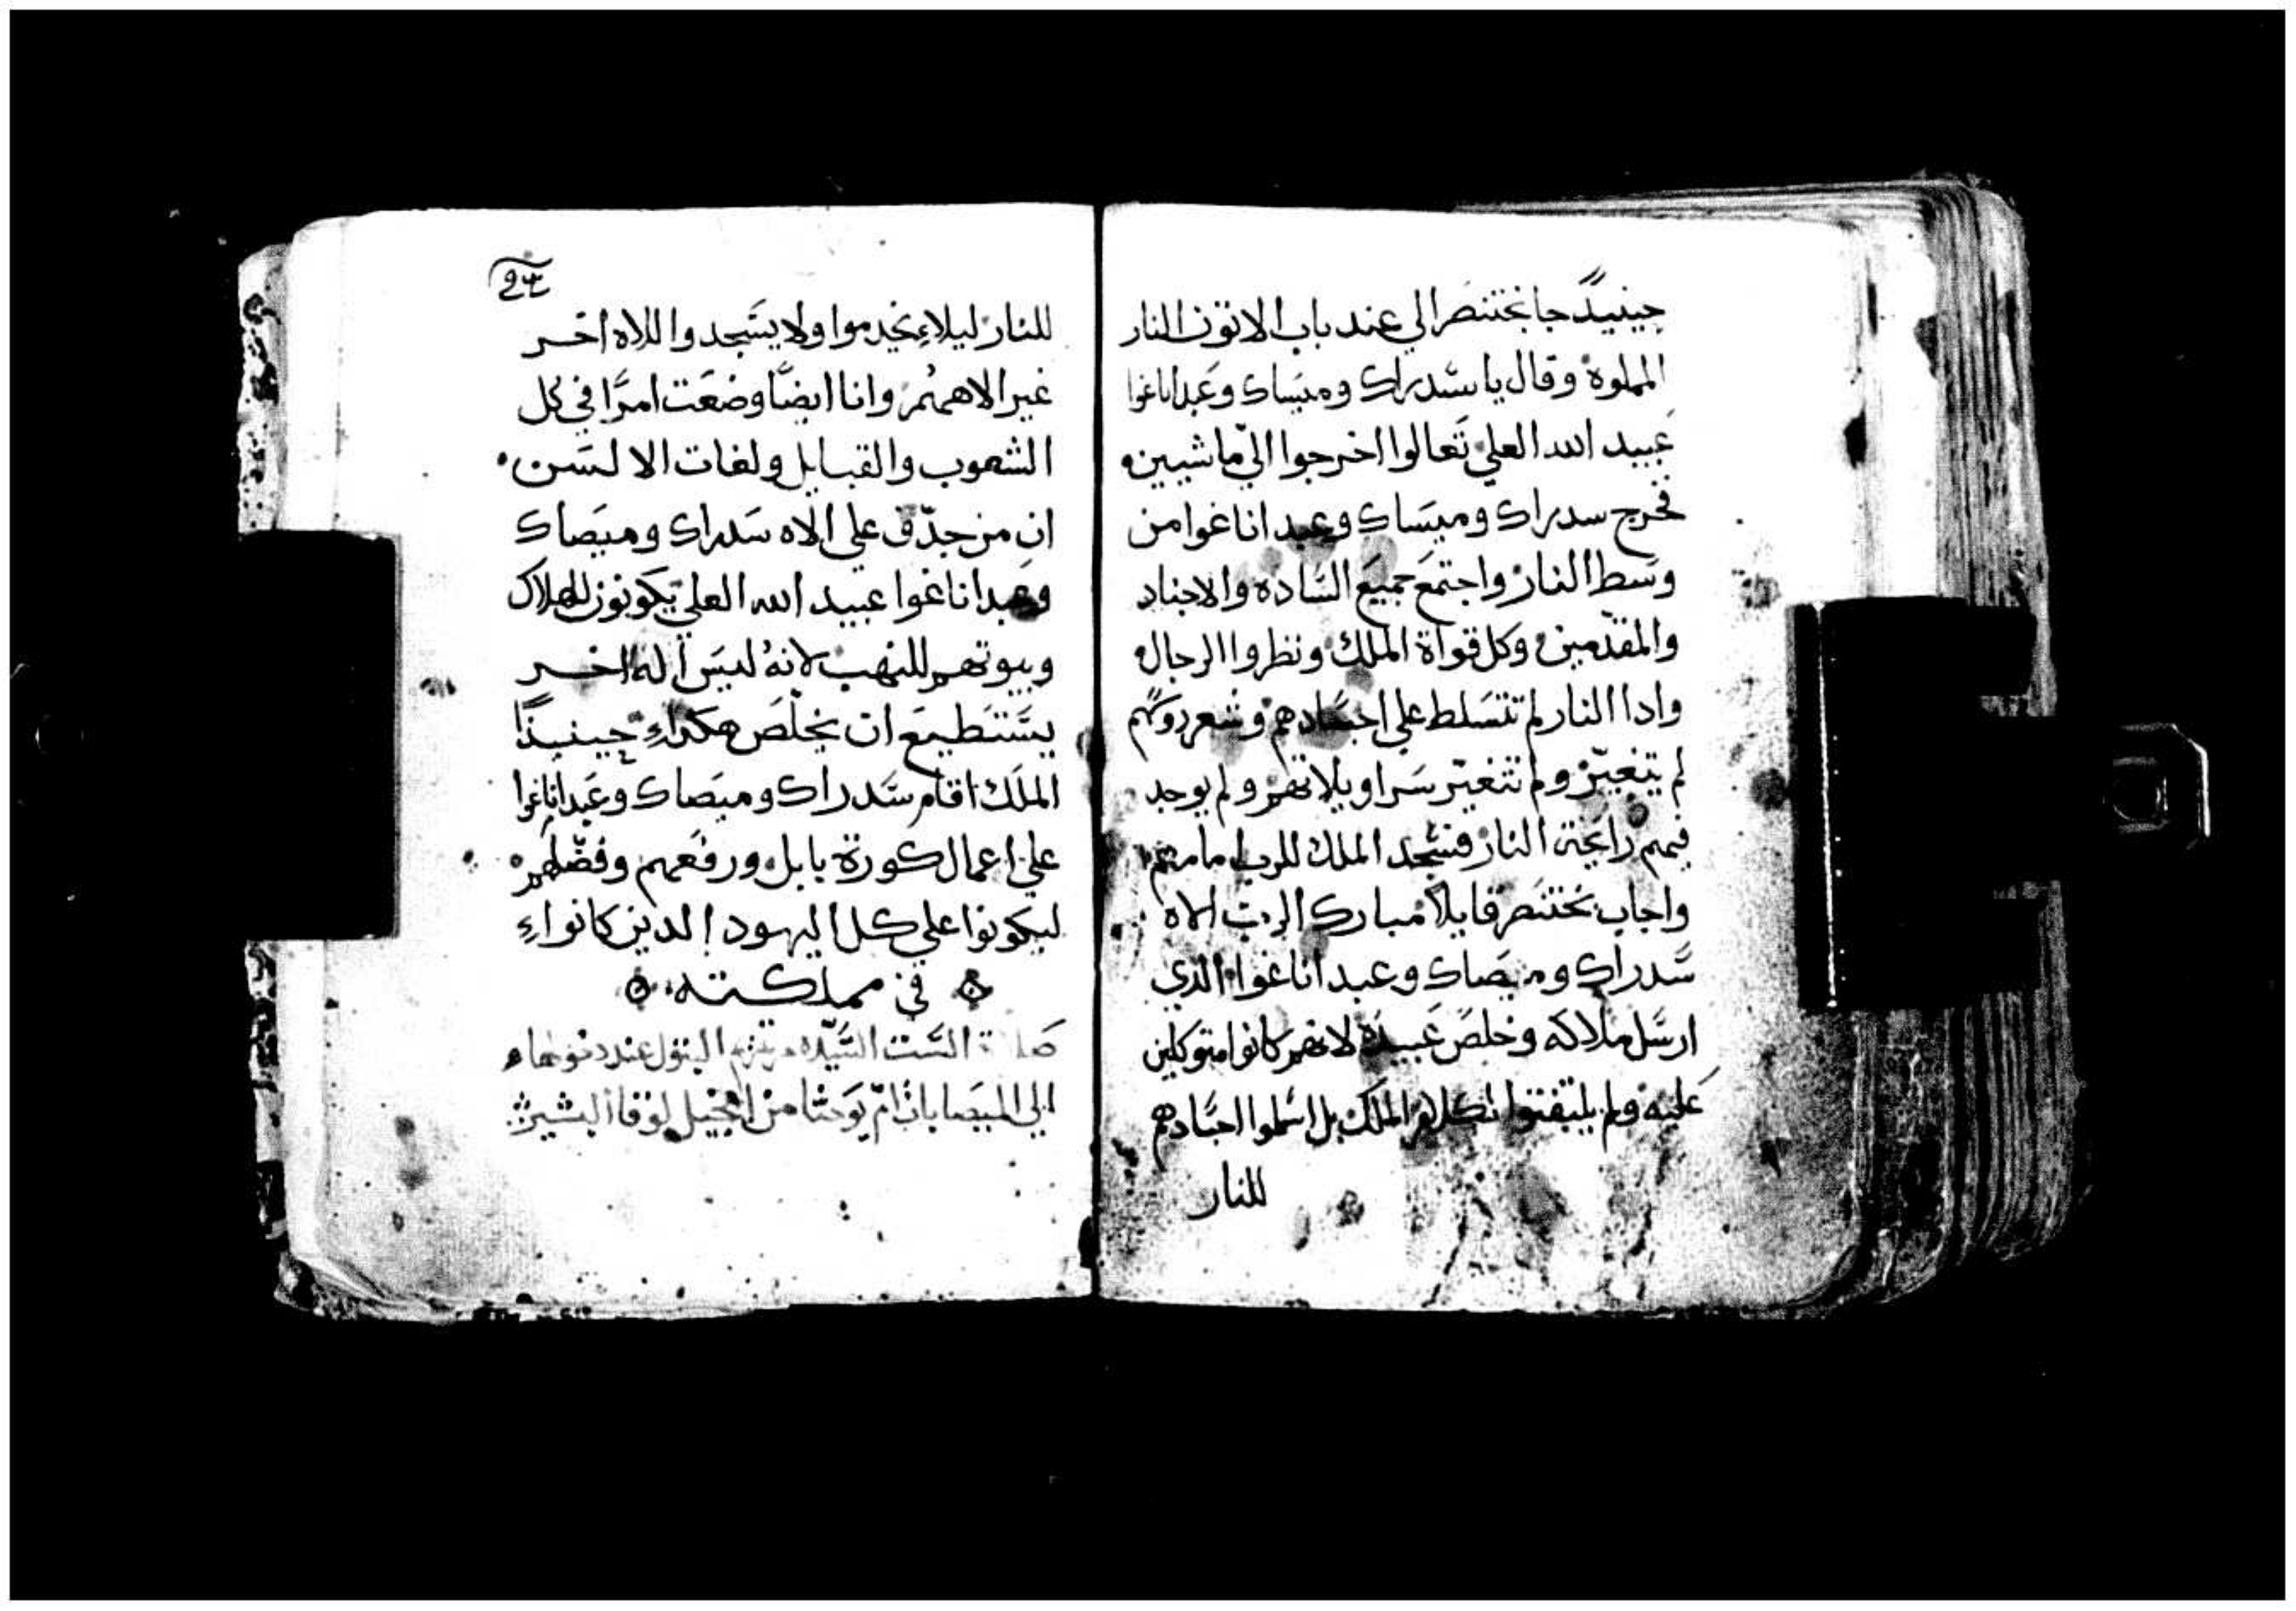 حينيدً جا بختنصر الي عند باب الاتون النار
المملوة وقال يا سدراك وميساك وعبداناغوا
عبيد الله العلي تعالوا اخرجوا اليّ ماشيين
فخرج سدراك وميساك وعبد اناغوا من
وسط النار واجتمع جميع الساده والاجناد
والمقدّمين وكل قواة الملك ونظروا الرجال
وادا النار لم تتسلط علي اجسادهم وشعر روسهم
لم يتغيّر ولم تتغيّر سراويلاتهم ولم يوجد
فيهم رايحة النار فسجد الملك للرب امامهم
واجاب بختنصر قايلاً مبارك الرب الاه
سدراك وميصاك وعبد اناغوا الدي
ارسل ملاكه وخلص عبيده لانهم كانوا متوكلين
عليه ولم يلتفتوا لكلام الملك بل اسلموا اجسادهم
للنار
للنار ليلا يخدموا ولا يسجدوا للاه اخر
غير الاههُم وانا ايضًا وضعت امرًا في كل
الشعوب والقبايل ولغات الالسن
ان من جدّف علي الاه سدراك وميصاك
وعبد اناغوا عبيد الله العلي يكونون للهلاك
وبيوتهم للنهب لانهُ ليس اله اخر
يستطيع ان يخلّص هكدا حينيذًا
الملك اقام سدراك وميصاك وعبداناغوا
علي اعمال كورة بابل ورفعهم وفضّلهم
ليكونوا علي كل اليهود الدين كانوا
في مملكته
الست السيّده مرتمريم البتول عند دخولها
الي اليصابات امّ يوحنا من انجيل لوقا البشير